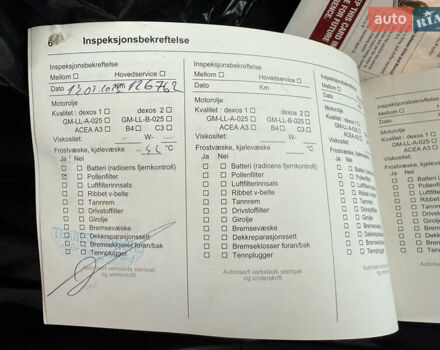 6 Inspeksjonsbekreftelse
Inspeksjonsbekreftelse
Mellom Hovedservice
Dato Km 126762
Motorolje
Kvalitet : dexos 1 dexos 2
GM-LL-A-025 GM-LL-B-025
ACEA A3 B4 C3
Viskositet: W-
Frostvæske, kjølevæske °C
Ja Nei
Batteri (radioens fjernkontroll)
Pollenfilter
Luftfilterinnsats
Ribbet v-belte
Tannrem
Drivstoffilter
Girolje
Bremsevæske
Dekkreparasjonssett
Bremseklosser foran/bak
Tennplugger
Autorisert verksteds stempel
og underskrift
Inspeksjonsbekreftelse
Mellom Hovedservice
Dato Km
Motorolje
Kvalitet : dexos 1 dexos 2
GM-LL-A-025 GM-LL-B-025
ACEA A3 B4 C3
Viskositet: W-
Frostvæske, kjølevæske °C
Ja Nei
Batteri (radioens fjernkontroll)
Pollenfilter
Luftfilterinnsats
Ribbet v-belte
Tannrem
Drivstoffilter
Girolje
Bremsevæske
Dekkreparasjonssett
Bremseklosser foran/bak
Tennplugger
Autorisert verksteds stempel
og underskrift
Inspeksjonsbekreftelse
Mellom
Dato
Motorolje
Kvalitet : dexos
GM-LL-A-
ACEA
Viskositet:
Frostvæske
Ja Nei
THIS CARD IN
FOR FUTURE
auto RIA